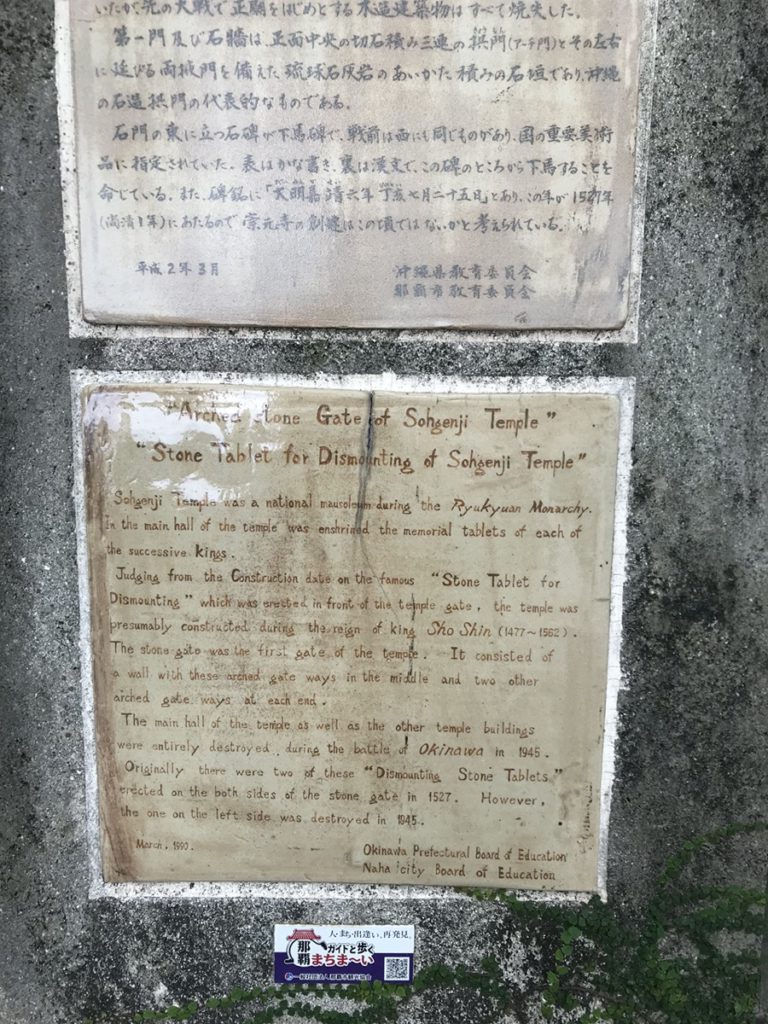 いたが、先の大戦で正廟をはじめとする木造建築物はすべて焼失した。
第一門及び石牆は、正面中央の切石積み三連の拱門(アーチ門)とその左右
に延びる両掖門を備えた琉球石灰岩のあいかた積みの石垣であり、沖縄
の石造拱門の代表的なものである。
石門の東に立つ石碑が下馬碑で、戦前は西にも同じものがあり、国の重要美術
品に指定されていた。表はかな書き、裏は漢文で、この碑のところから下馬することを
命じている。また、碑銘に「大明嘉靖六年丁亥七月二十五日」とあり、この年が1527年
(尚清1年)にあたるので崇元寺の創建はこの頃ではないかと考えられている。
平成2年3月
沖縄県教育委員会
那覇市教育委員会
"Arched Stone Gate of Sohgenji Temple"
"Stone Tablet for Dismounting of Sohgenji Temple"
Sohgenji Temple was a national mausoleum during the Ryukyuan Monarchy.
In the main hall of the temple was enshrined the memorial tablets of each of
the successive kings.
Judging from the Construction date on the famous "Stone Tablet for
Dismounting" which was erected in front of the temple gate, the temple was
presumably constructed during the reign of king Sho Shin (1477~1562).
The stone gate was the first gate of the temple. It consisted of
a wall with these arched gate ways in the middle and two other
arched gate ways at each end.
The main hall of the temple as well as the other temple buildings
were entirely destroyed during the battle of Okinawa in 1945.
Originally there were two of these "Dismounting Stone Tablets"
erected on the both sides of the stone gate in 1527. However,
the one on the left side was destroyed in 1945.
March, 1990.
Okinawa Prefectural Board of Education
Naha city Board of Education
人・まち・出逢い、再発見。
那覇
ガイドと歩く
まちま〜い
一般社団法人那覇市観光協会